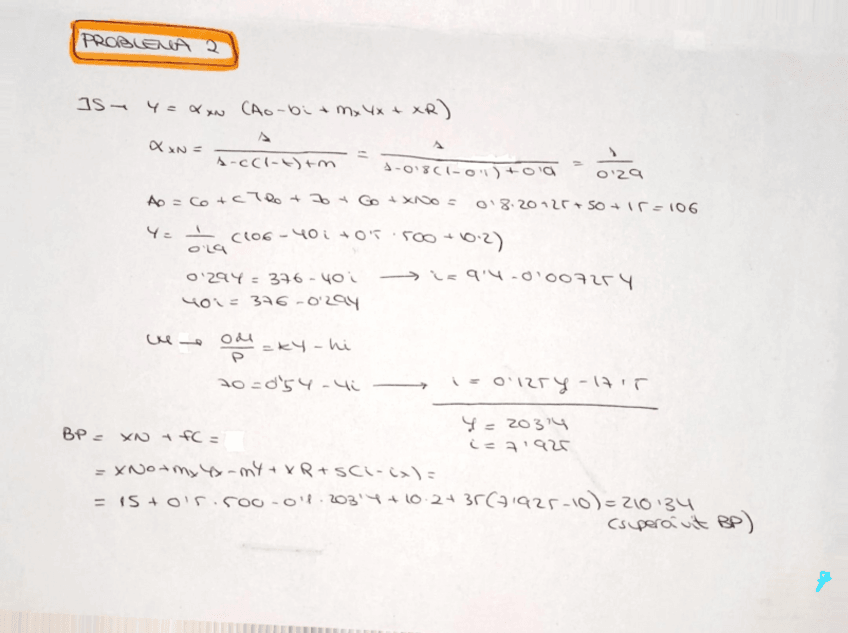 PROBLEMA 2
IS → Y = α XN (Ao - bi + mx Yx + xR)
α XN = 1 / 1-c(1-t)+m = 1 / 1-0'8(1-0'1)+0'01 = 1 / 0'29
Ao = Co + cTRo + Io + Go + XNo = 0'8·20+25+50+15 = 106
Y = 1 / 0'29 (106 - 40i + 0'5 · 500 + 10·2)
0'29Y = 376 - 40i → i = 9'4 - 0'00725Y
40i = 376 - 0'29Y
LM → OM / P = kY - hi
70 = 0'5Y - 4i → i = 0'125Y - 17'5
Y = 203'4
i = 7'925
BP = XN + FC =
= XNo + mx Yx - mY + xR + s(i - ix) =
= 15 + 0'5 · 500 - 0'1 · 203'4 + 10·2 + 35(7'925-10) = 210'34
(superávit BP)